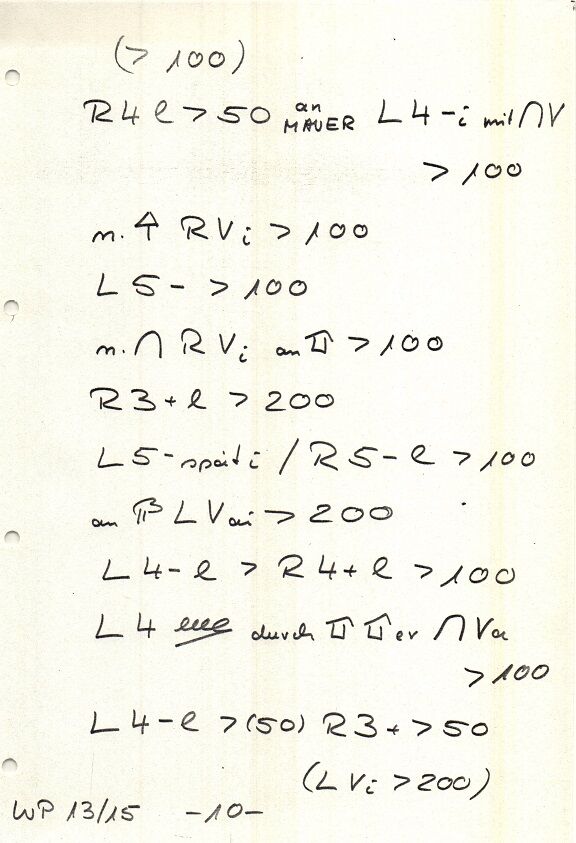 (> 100)
R4 l > 50 an MAUER L4-i mit ∩V
> 100
n. ⇧ RVi > 100
L5- > 100
n. ∩ RVi an > 100
R3+l > 200
L5-spät i / R5-l > 100
an LVai > 200
L4-l > R4+l > 100
L4 durch er ∩Va
> 100
L4-l > (50) R3+ > 50
(LVi > 200)
WP 13/15 -10-